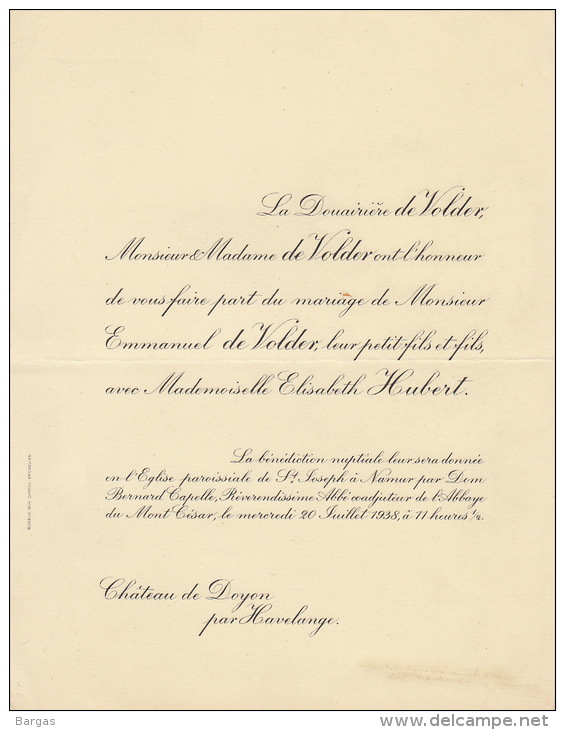 La Douairière de Volder,
Monsieur & Madame de Volder ont l'honneur
de vous faire part du mariage de Monsieur
Emmanuel de Volder, leur petit-fils et-fils,
avec Mademoiselle Elisabeth Hubert.
La bénédiction nuptiale leur sera donnée
en l'Eglise paroissiale de St. Joseph à Namur par Dom
Bernard Capelle, Réverendissime Abbé coadjuteur de l'Abbaye
du Mont César, le mercredi 20 Juillet 1938, à 11 heures ½.
Château de Doyon
par Havelange.
Bargas
www.delcampe.net